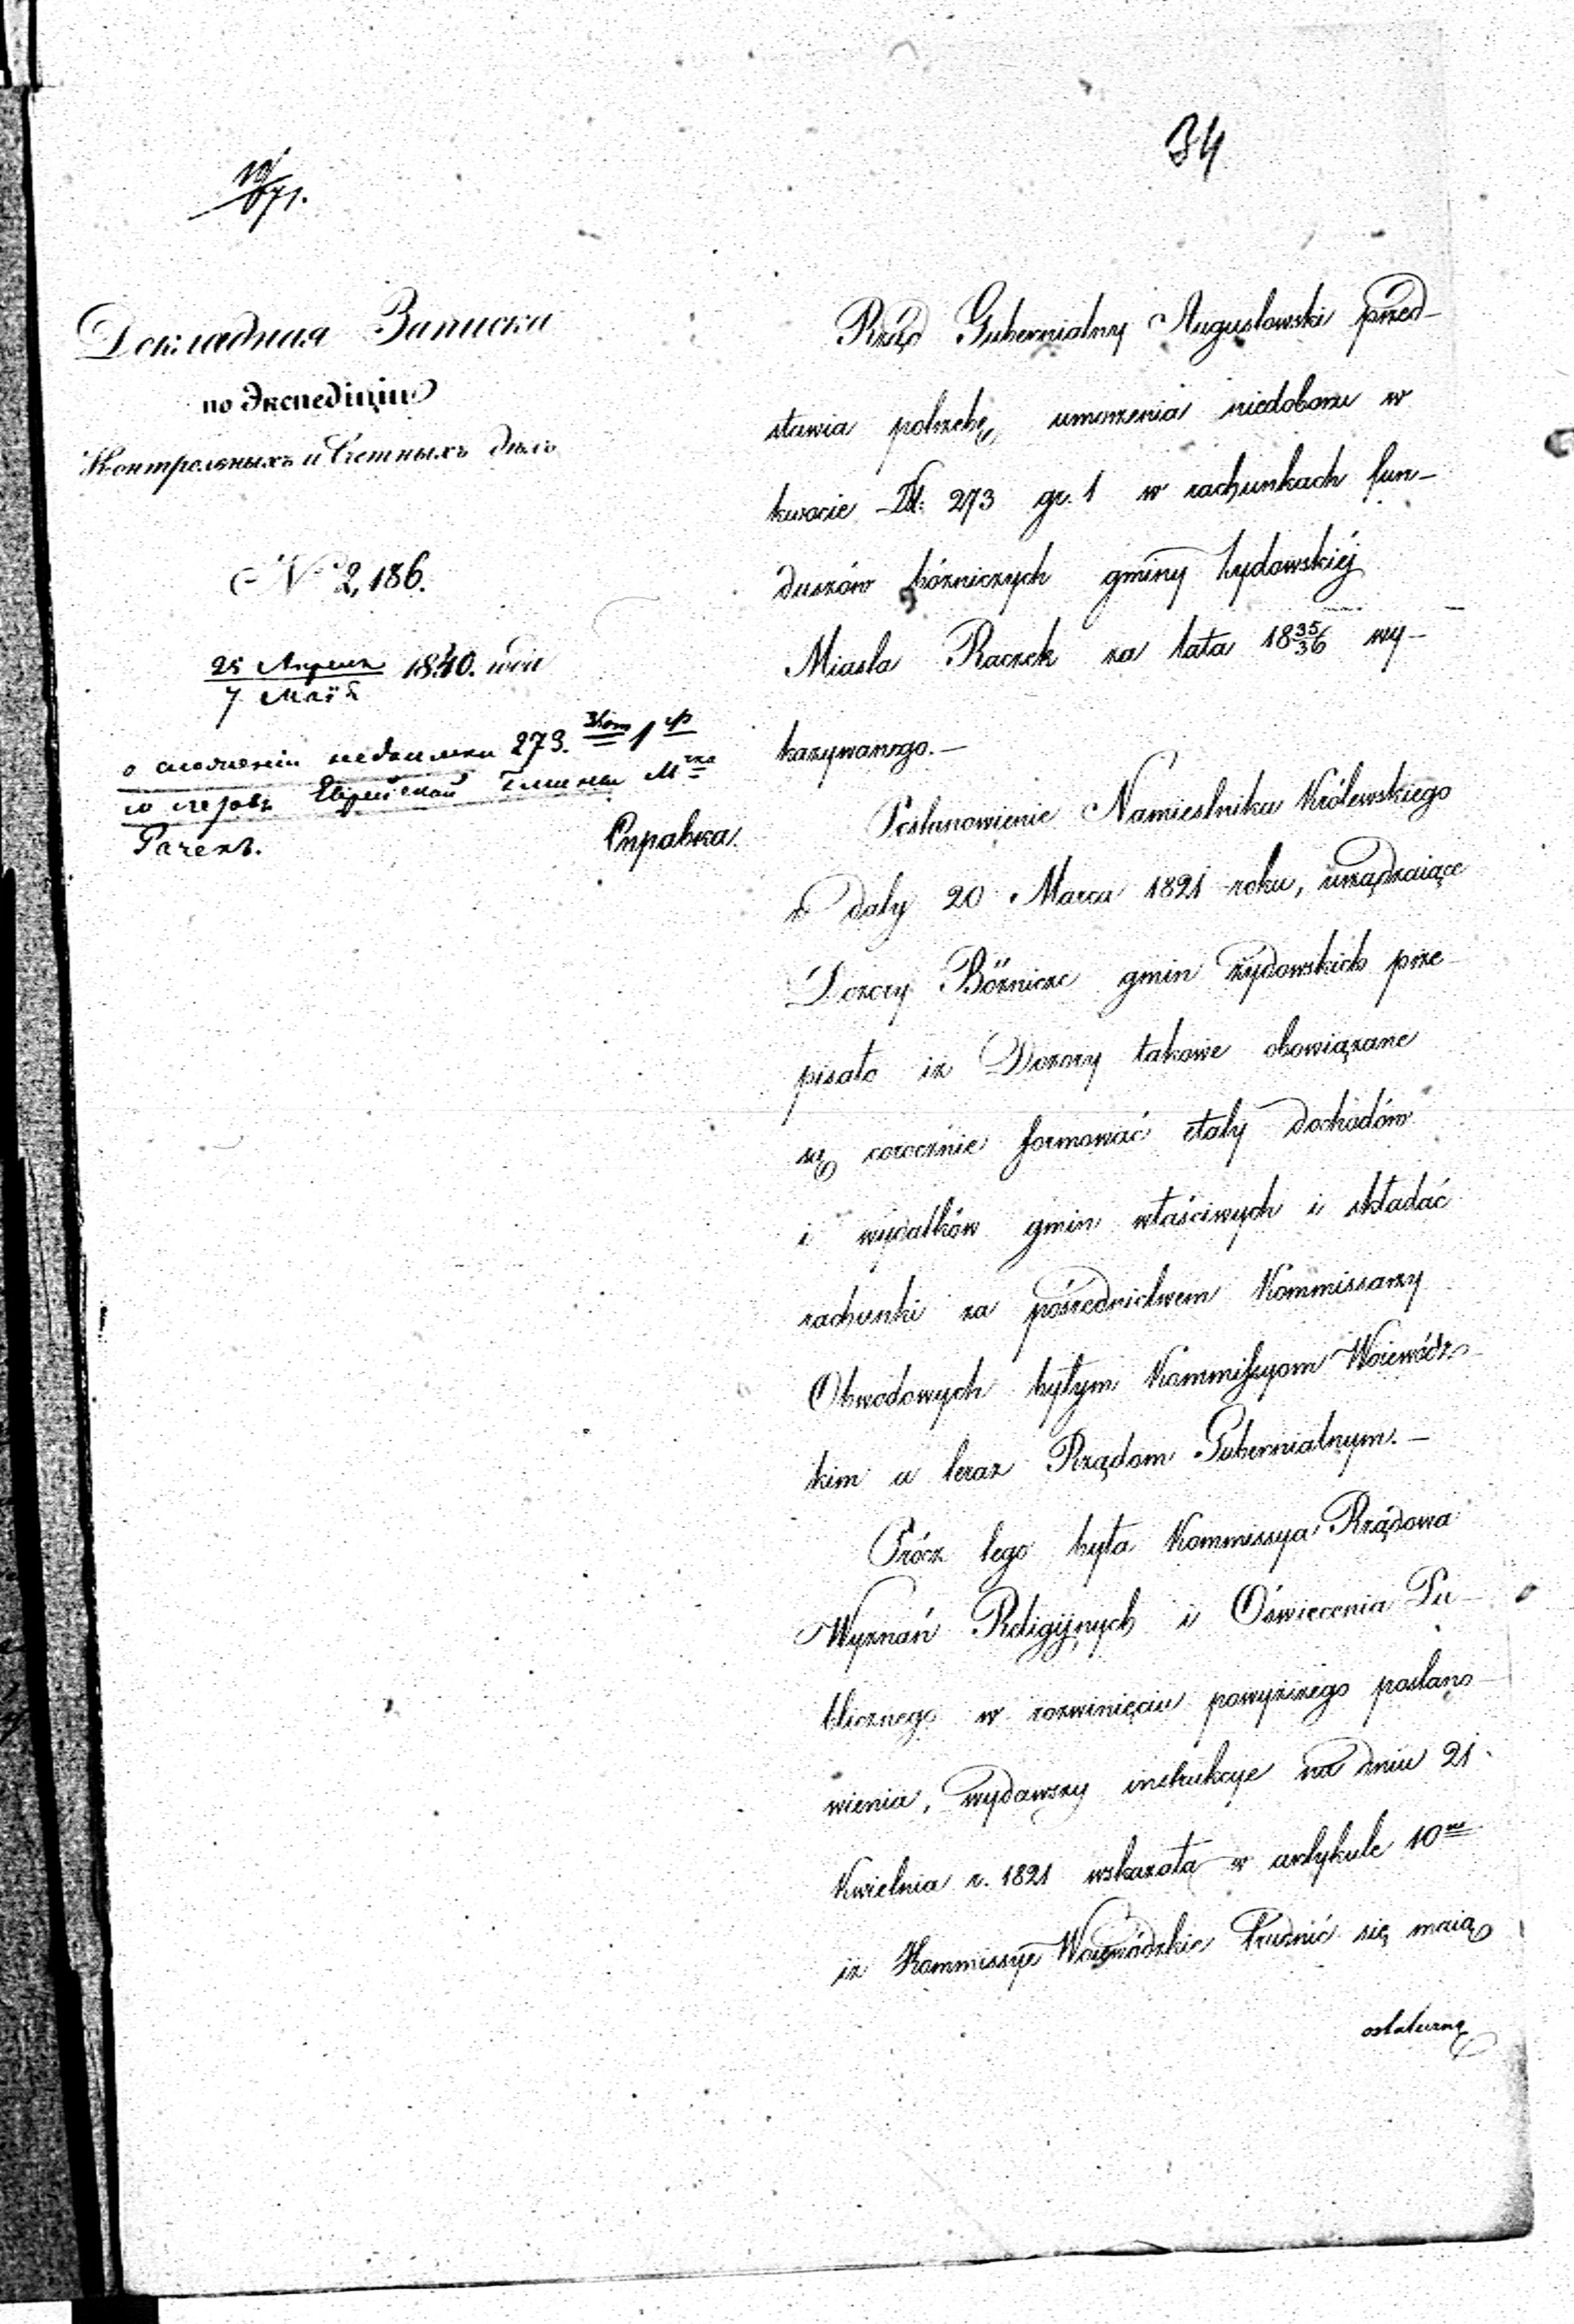 34
10/671.
Докладная Записка
по Экспедиціи
Контрольныхъ и Счетныхъ дѣлъ
№ 2,186.
25 Апреля
7 Маія 1840. года
о сложеніи недоимки 273. Злот 1 гр
со счетовъ Еврейской Гмины М-чка
Рачекъ.
Справка.
Rząd Gubernialny Augustowski przed-
stawia potrzebę umorzenia niedoboru w
kwocie Zł: 273 gr. 1 w rachunkach fun-
duszów bóżniczych gminy żydowskiéj
Miasta Raczek za lata 1835/36 wy-
kazywanego.—
Postanowienie Namiestnika Królewskiego
z daty 20 Marca 1821 roku, urządzaiące
Dozory Bóżnicze gmin żydowskich prze-
pisało iż Dozory takowe obowiązane
są corocznie formować etaty dochodów
i wydatków gmin właściwych i składać
rachunki za pośrednictwem Kommissarzy
Obwodowych byłym Kommissyom Woiewódz-
kim a teraz Rządom Gubernialnym.—
Prócz tego była Kommissya Rządowa
Wyznań Religijnych i Oświecenia Pu-
blicznego w rozwinięciu powyższego postano-
wienia, wydawszy instrukcye na dniu 21
Kwietnia r. 1821 wskazała w artykule 10ym
iż Kommissye Woiewódzkie trudnić się maią
ostateczną